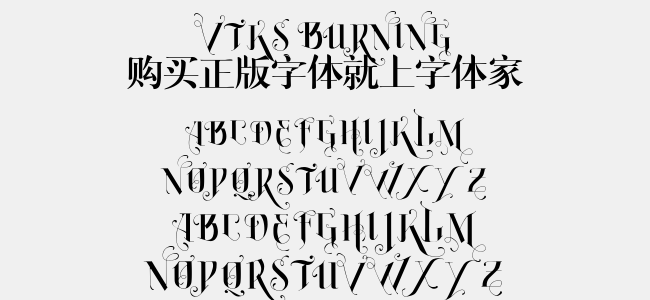 VTKS BURNING
购买正版字体就上字体家
ABCDEFGHIJKLM
NOPQRSTUVWXYZ
ABCDEFGHIJKLM
NOPQRSTUVWXYZ